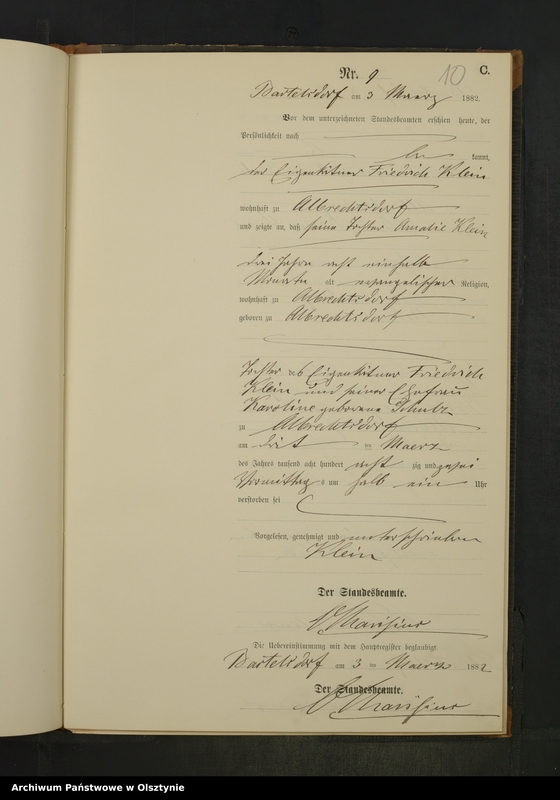 Nr. 9
10
C.
Bartelsdorf am 3 Maerz 1882.
Vor dem unterzeichneten Standesbeamten erschien heute, der
Persönlichkeit nach
be kannt,
der Eigenkätner Friedrich Klein
wohnhaft zu Albrechtsdorf
und zeigte an, daß seine Tochter Amalie Klein
drei Jahre acht einhalb
Monate alt evangelischer Religion,
wohnhaft zu Albrechtsdorf
geboren zu Albrechtsdorf
Tochter des Eigenkätner Friedrich
Klein und seiner Ehefrau
Karoline geborene Schulz
zu Albrechtsdorf
am Maerz
des Jahres tausend acht hundert acht zig und zwei
Vormittags um halb ein Uhr
verstorben sei
Vorgelesen, genehmigt und unterschrieben
Klein
Der Standesbeamte.
Die Uebereinstimmung mit dem Hauptregister beglaubigt.
Bartelsdorf am 3 ten Maerz 1882
Der Standesbeamte.
Archiwum Państwowe w Olsztynie